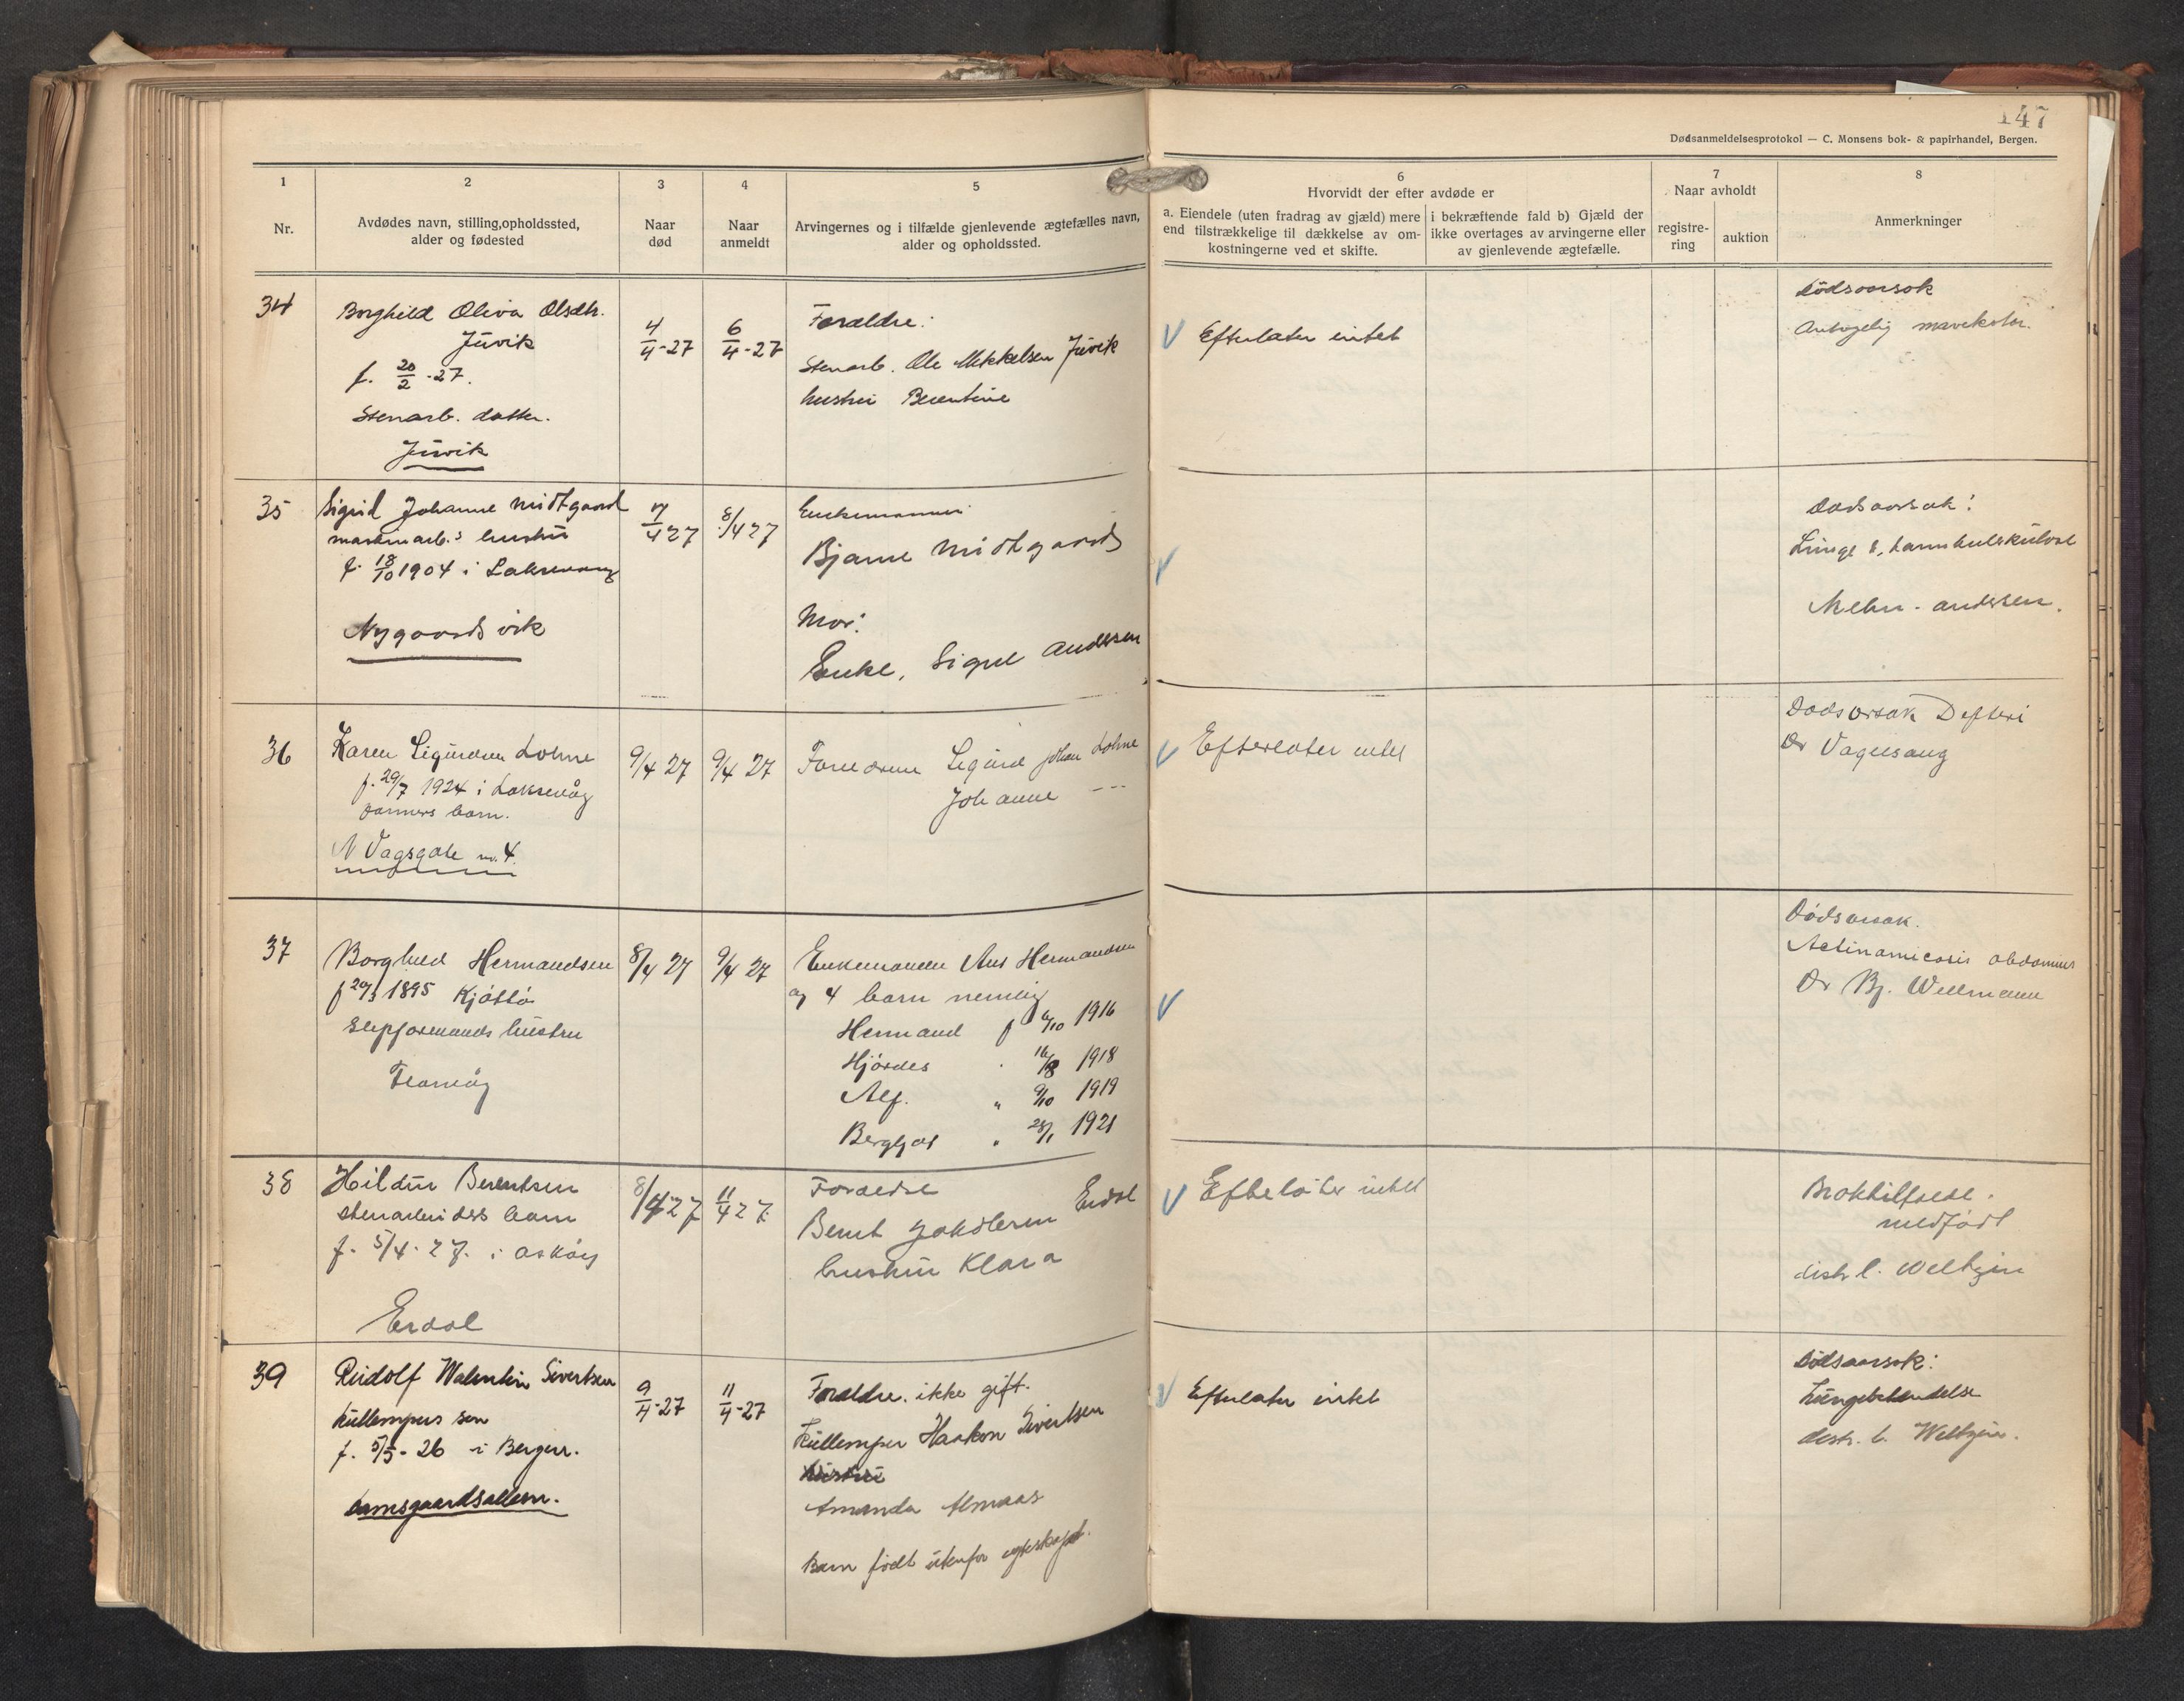 147
Dødsanmeldelsesprotokol — C. Monsens bok- & papirhandel, Bergen.
1
Nr.
2
Avdødes navn, stilling, opholdssted,
alder og fødested
3
Naar
død
4
Naar
anmeldt
5
Arvingernes og i tilfælde gjenlevende ægtefælles navn,
alder og opholdssted.
6
Hvorvidt der efter avdøde er
a. Eiendele (uten fradrag av gjæld) mere
end tilstrækkelige til dækkelse av om-
kostningerne ved et skifte.
i bekræftende fald b) Gjæld der
ikke overtages av arvingerne eller
av gjenlevende ægtefælle.
7
Naar avholdt
registre-
ring
auktion
8
Anmerkninger
34
Borghild Oliva Olsdtr.
Juvik
f. 20/2 -27.
Stenarb. datter.
Juvik
4/4-27
6/4-27
Forældre:
Stenarb. Ole Mikkelsen Juvik
hustru Berentine
Efterlater intet
Dödsaarsak
Antagelig
35
Sigrid Johanne Midtgaard
hustru
f. 18/10 1904 i Laksevaag
Nygaardsvik
7/4 27
8/4 27
Enkemannen
Bjarne Midtgaard
Mor:
Enke, Signe Andersen
Dødsaarsak:
Lunge &
Mehn-Andersen.
36
Karen Sigurdsen Lohne
f. 29/7 1924 i Laksevåg
barn.
N Vagsgate nr. 4.
9/4 27
9/4 27
Sigurd Johan Lohne
Johanne - - -
Efterlater intet
Dødsorsak Difteri
Dr
37
Borghild Hermandsen
1895
hustru
8/4 27
9/4 27
Enkemanden Hermandsen
og 4 barn nemlig
Hermand f 6/10 1916
Hjördes 1918
Alf. " 9/10 1919
Bergljot " 1921
Dödsorsak.
Actinamicosis abdominis
Dr Bj. Wellmann
38
Hildur Berentsen
stenarbeiders barn
f. 5/4-27. i Askøy
Erdal
8/4 27
11/4 27
Forældre
Bernt Jakobsen Erdal
hustru Klara
Efterlater intet
medfödt
distr l. Weltzin
39
Rudolf Walentin Sivertsen
kullempers søn
f. 5/5-26 i Bergen.
Damsgaardsalleen.
9/4-27
11/4-27
Forældre. ikke gift.
Kullemper Haakon Sivertsen
hustru
Amanda Almaas
Barn født utenfor egteskapet.
Efterlater intet
Dödsaarsak:
Lungebetendelse
distr. l. Weltzin.